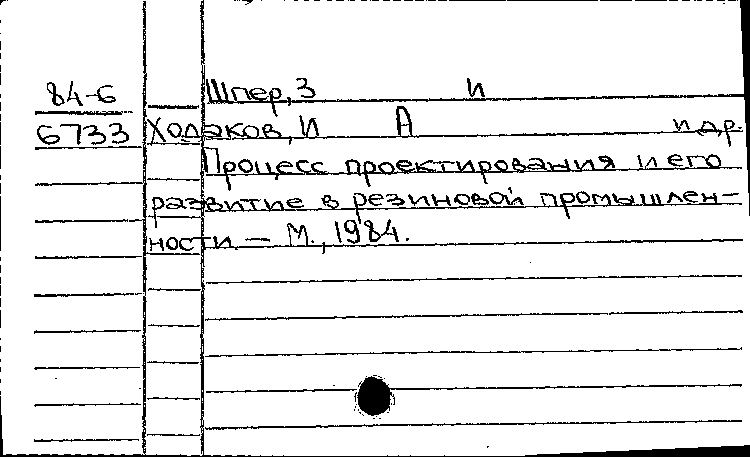 84-6 Шпер, З И
6733 Ходаков, И А и др.
Процесс проектирования и его
развитие в резиновой промышлен-
ности — М., 1984.